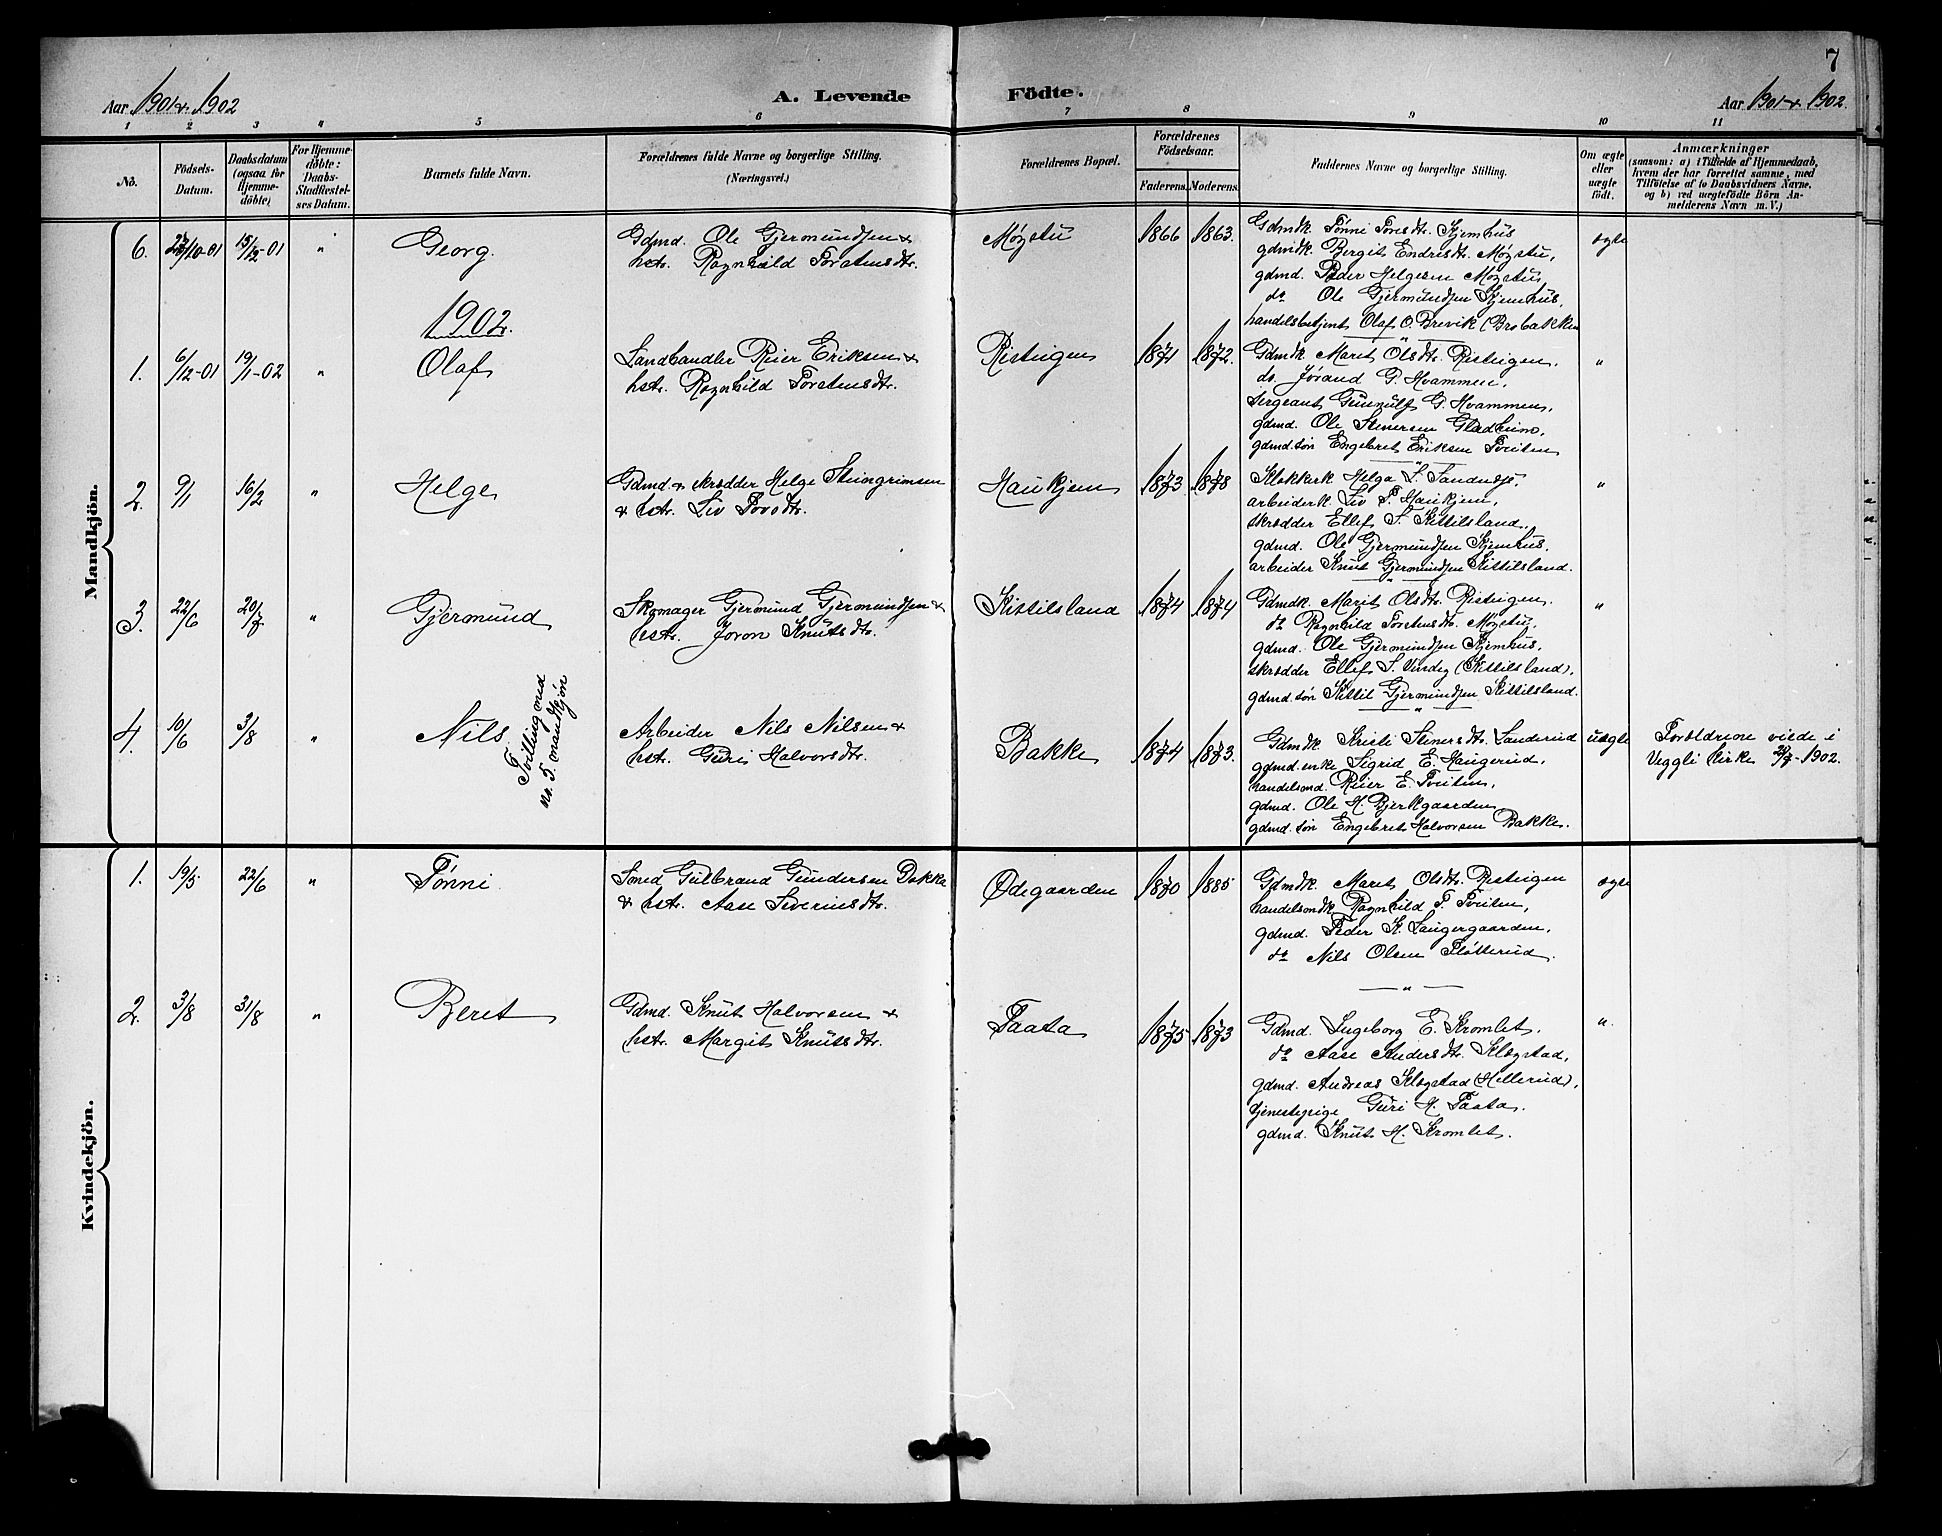 7
Aar 1901 & 1902
A. Levende Födte.
Aar 1901 & 1902.
1 2 3 4 5 6 7 8 9 10 11
No.
Födsels-
Datum.
Daabsdatum
(ogsaa for
Hjemme-
döbte)
For Hjemme-
döbte:
Daabs-
Stadfæstel-
ses Datum.
Barnets fulde Navn.
Forældrenes fulde Navne og borgerlige Stilling.
(Næringsvei.)
Forældrenes Bopæl.
Forældrenes
Födselsaar.
Faderens.
Moderens.
Faddernes Navne og borgerlige Stilling.
Om ægte
eller
uægte
födt.
Anmærkninger
(saasom: a) i Tilfælde af Hjemmedaab,
hvem der har forrettet samme, med
Tilföielse af to Daabsvidners Navne.
og b) ved uægtefödte Börn An-
melderens Navn m. V.)
Mandkjön.
6. 27/10-01 15/12-01 " Georg.
Gdmd. Ole Gjermundsen &
hstr. Ragnhild Torstensdtr.
Møystu 1866 1863.
Gdmdk. Tønni Toresdtr. Kjemhus
gdmdk. Bergit Endresdtr. Møystu,
gdmd. Peder Helgesen Møystu,
do Ole Gjermundsen Kjemhus,
handelsbetjent Olaf O. Brevik (Brobakken
ægte
1902.
1. 6/12-01 19/1-02 " Olaf
Landhandler Reier Eriksen &
hstr. Ragnhild Torstensdtr.
Risteigen 1871 1872.
Gdmdk. Marit Olsdtr. Risteigen.
do. Jørand G. Hvammen,
Sergeant Gunnulf G. Hvammen,
gdmd. Ole Steinersen Gladheim,
gdmd. søn Engebret Eriksen Tveiten
"
2. 9/1 16/2 " Helge
Gdmd. & skrædder Helge Steingrimsen
& hstr. Liv Tovsdtr.
Haukjem 1873 1878
Klokkerk. Helga S. Sandnes,
arbeiderk. Liv T. Haukjem,
skrædder Ellef S. Kittilsland,
gdmd. Ole Gjermundsen Kjemhus.
arbeider Knut Gjermundsen Kittilsland.
"
3. 22/6 20/7 " Gjermund
Skomager Gjermund Gjermundsen &
hstr. Joron Knutsdtr.
Kittilsland 1874 1874
Gdmdk. Marit Olsdtr. Risteigen.
do Ragnhild Torstensdtr. Møystu,
gdmd. Ole Gjermundsen Kjemhus,
skrædder Ellef S. Vindeg (Kittilsland),
gdmd. søn Kittil Gjermundsen Kittilsland.
"
4. 10/6 3/8 " Nils
Tvilling med
no. 5. mandkjøn
Arbeider Nils Nilsen &
hstr. Guri Halvorsdtr.
Bakke 1874 1873.
Gdmdk. Kristi Steinersdtr. Landerud
gdmd. enke Sigrid E. Haugerud,
handelsmd. Reier E. Tveiten,
gdmd. Ole H. Bjerkgaarden
gdmd. søn Engebret Halvorsen Bakke.
uægte
Forældrene viede i
Veggli kirke 20/7-1902.
Kvindekjön.
1. 19/5 22/6 " Tønni
Smed Gulbrand Gundersen Bakke
& hstr. Aase Severinsdtr.
Ødegaarden 1870 1885
Gdmdk. Marit Olsdtr. Risteigen
handelsmdk Ragnhild T. Tveiten,
gdmd. Peder K. Laugergaarden,
do Nils Olsen Fløtterud.
ægte
2. 3/8 31/8 " Beret
Gdmd. Knut Halvorsen &
hstr. Margit Knutsdtr.
Taata 1875 1873
Gdmd. Ingeborg E. Kromlet.
do Aase Andersdtr. Klegstad,
gdmd. Andreas Klegstad (Hellerud),
tjenestepige Guri H. Taata.
gdmd. Knut H. Kromlet.
"